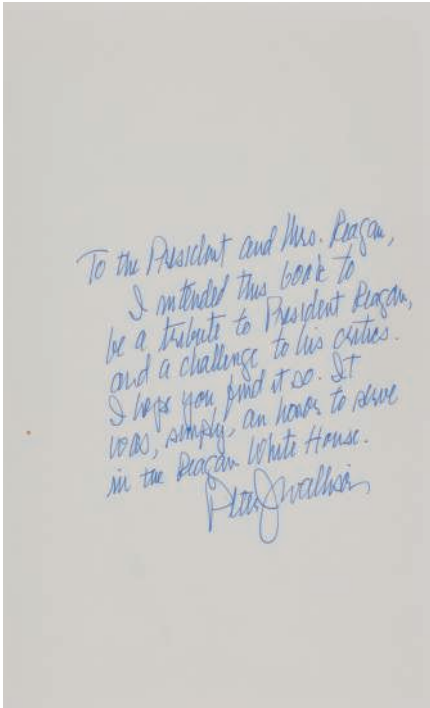 To the President and Mrs. Reagan,
I intended this book to
be a tribute to President Reagan,
and a challenge to his critics.
I hope you find it so. It
was, simply, an honor to serve
in the Reagan White House.
Peter J Wallison